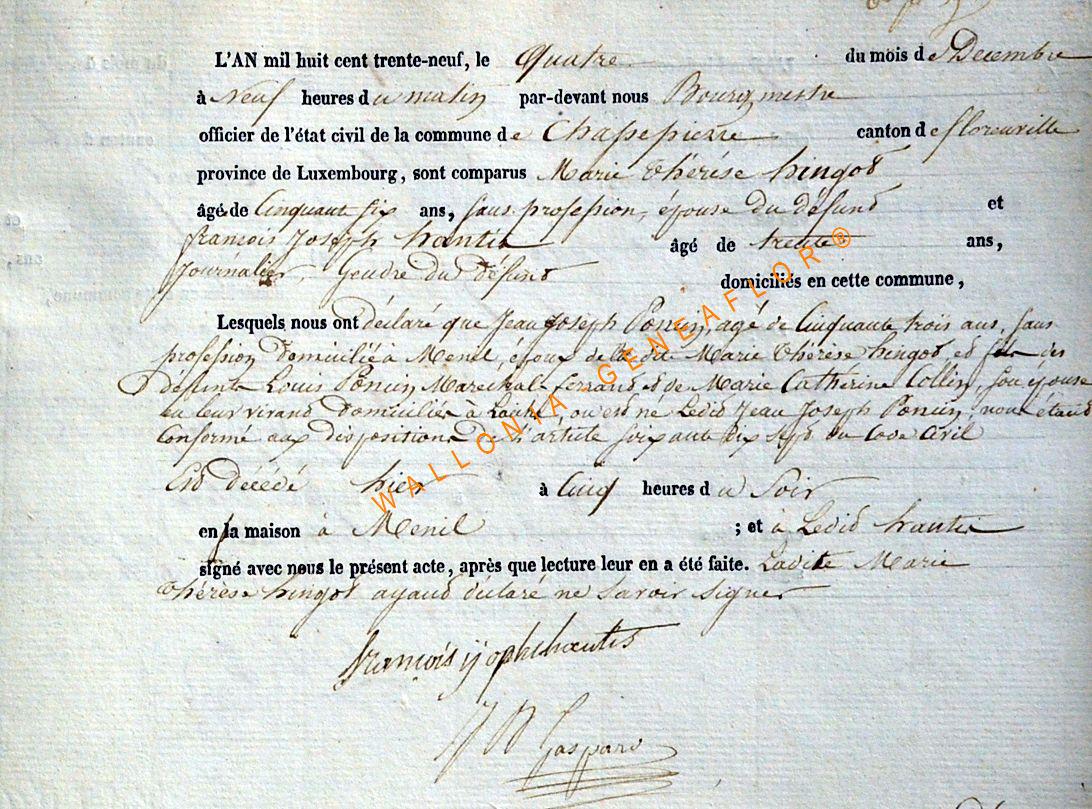 L'AN mil huit cent trente-neuf, le Quatre du mois de Decembre
à Neuf heures du matin par-devant nous Bourgmestre
officier de l'état civil de la commune de Chassepierre canton de florenville
province de Luxembourg, sont comparus Marie thérése hingot
âgé de Cinquante six ans, sans profession, épouse du défunt et
françois Joseph hantis âgé de trente ans,
Journalier, Gendre du Défunt domiciliés en cette commune,
Lesquels nous ont déclaré que Jean Joseph Poncin, agé de Cinquante trois ans, sans
profession Domicilié à Menil, époux de la dite Marie thérèse hingot, et fils des
défunts Louis Poncin, Marechal ferrand et de Marie Catherine Collin, son épouse
en leur vivant Domiciliés à ou est né Ledit Jean Joseph Poncin, nous étant
Conformé aux dispositions de l'article soixante dix sept du Code Civil
Est décédé hier à Cinq heures du Soir
en la maison à Menil ; et à Ledit hantis
signé avec nous le présent acte, après que lecture leur en a été faite. Ladite Marie
thérèse hingot ayant déclaré ne savoir signer
françois
Gaspard
WALLONIA GENEAFLOR®